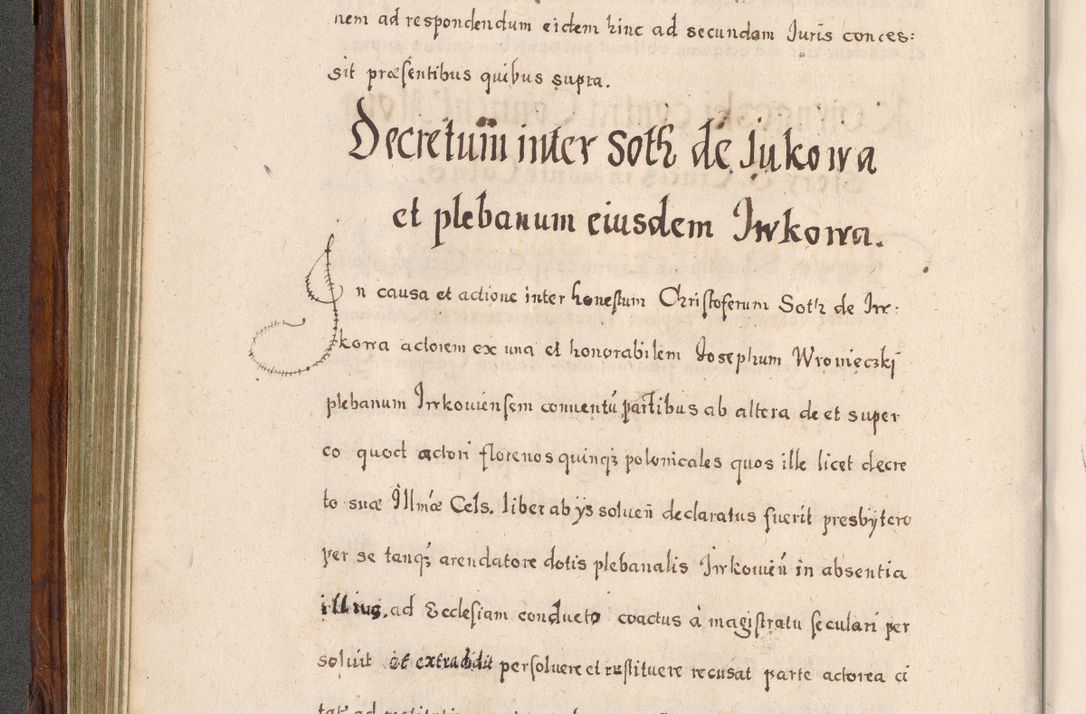 nem ad respondendum eidem hinc ad secundam Juris conces:
sit præsentibus quibus supra.
Decretum inter Soth de Jukowa
et plebanum eiusdem Irvkowa.
In causa et actione inter honestum Christoferum Soth de Irv:
kowa actorem ex una et honorabilem Josephum Wronieczki
plebanum Irvkouiensem conuentũ partibus ab altera de et super
eo quod actori florenos quinq₃ polonicales quos ille licet decre
to suæ Illmæ Cels. liber ab ys soluen̄ declaratus fuerit presbytero
per se tanq₃ arendatore dotis plebanalis Irvkouien̄ in absentia
illius, ad Ecclesiam conducto coactus à magistratu seculari per
soluit et extradidit persoluere et restituere recusat parte actorea ci